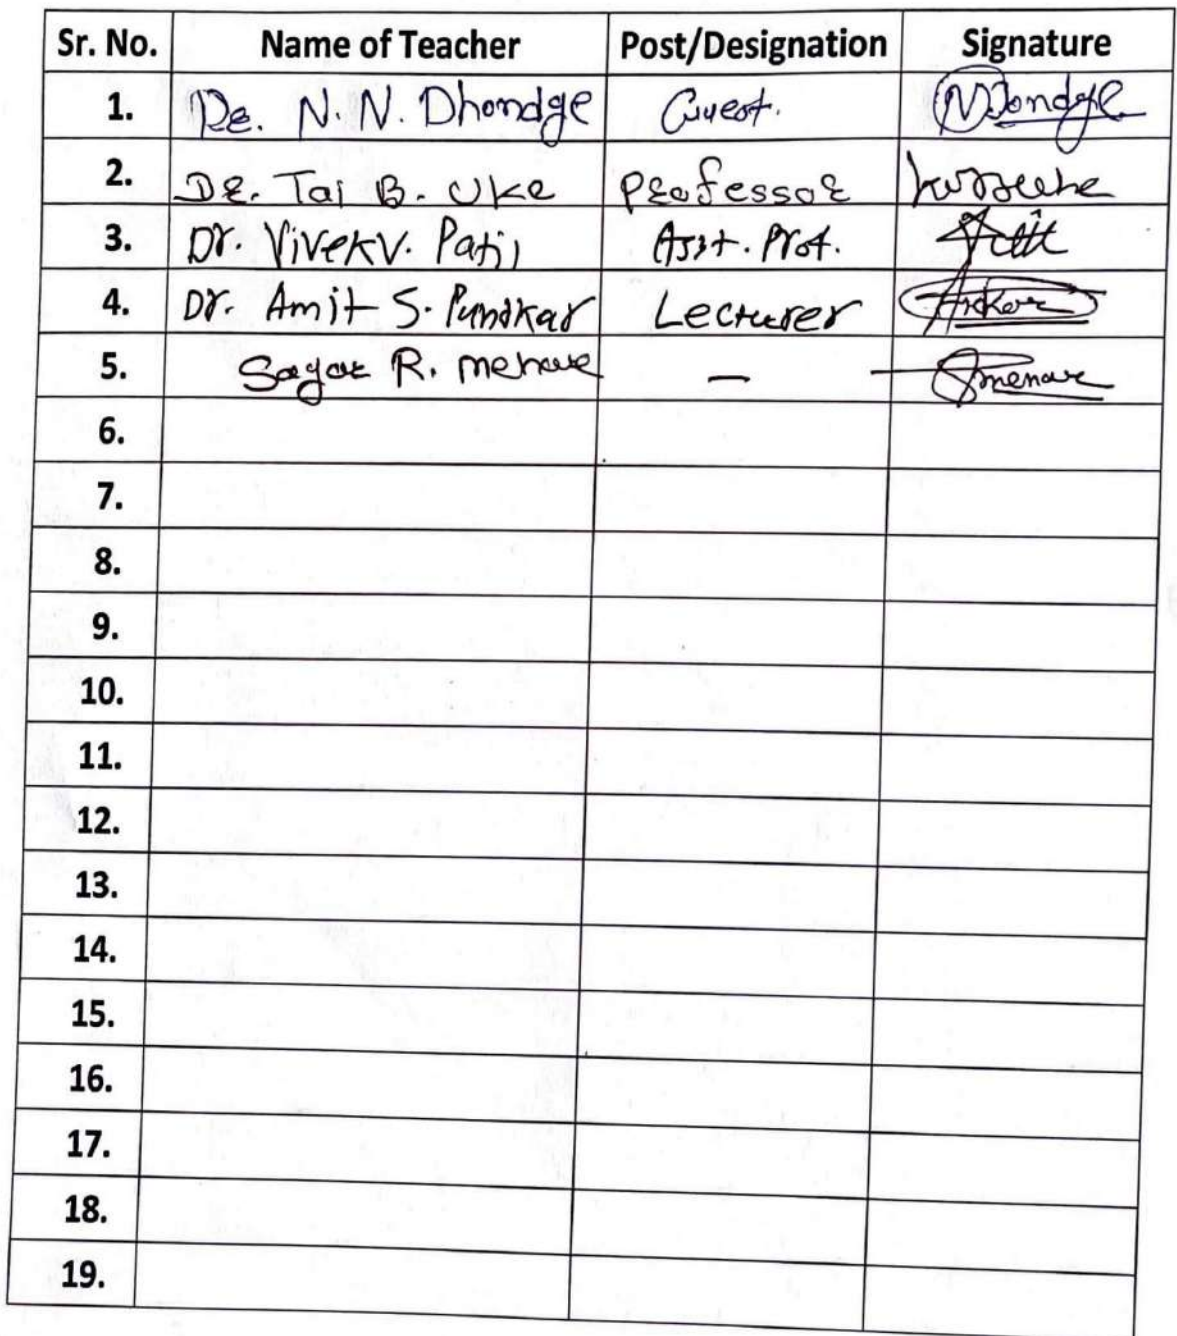 Sr. No. Name of Teacher Post/Designation Signature
1. Dr. N. N. Dhondge Guest.
2. Dr. Tai B. Uke Professor
3. Dr. Vivek V. Patil Asst. Prof.
4. Dr. Amit S. Pundkar Lecturer
5. Sagar R. Menave —
6.
7.
8.
9.
10.
11.
12.
13.
14.
15.
16.
17.
18.
19.